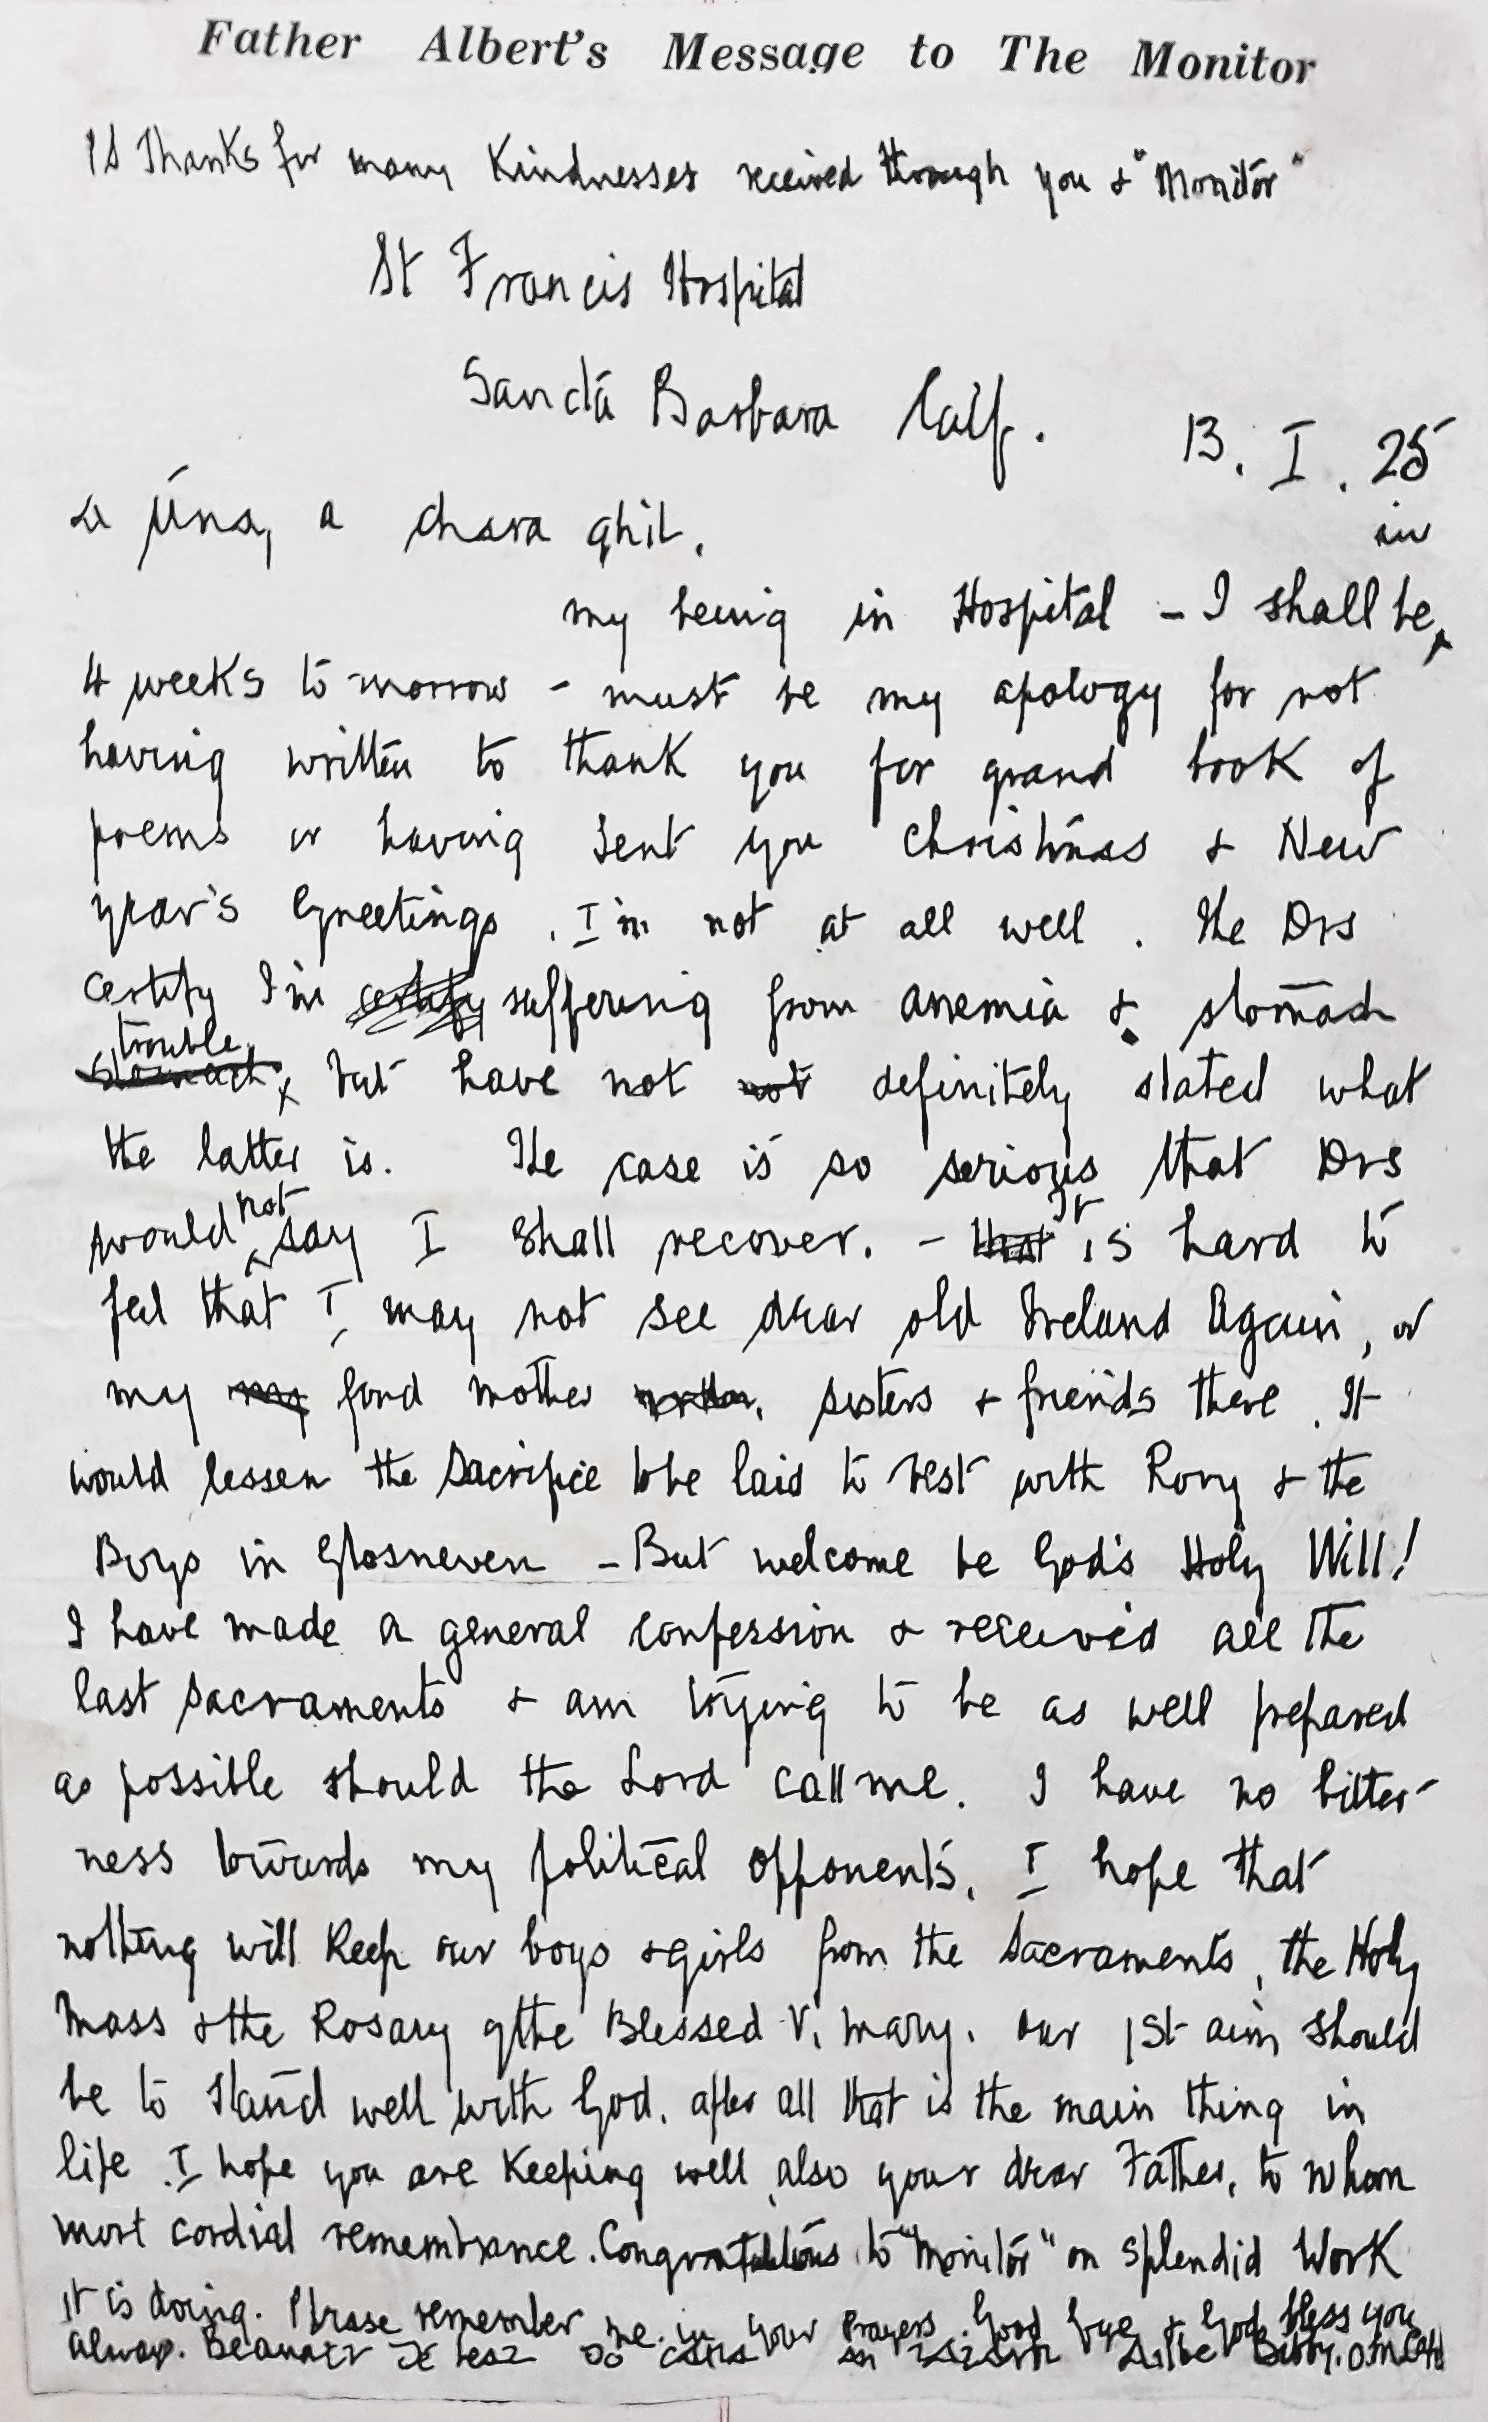 Father Albert's Message to The Monitor
PS Thanks for many Kindnesses received through you & "Monitor"
St Francis Hospital
Santa Barbara Calif.
13. I. 25
A Úna, a chara ghil,
in
my being in Hospital - I shall be
4 weeks to-morrow - must be my apology for not
having written to thank you for grand book of
poems or having sent you Christmas & New
year's Greetings. I'm not at all well. The Drs
certify I'm certify suffering from anemia & stomach
trouble
stomach but have not not definitely stated what
the latter is. The case is so serious that Drs
not It
would say I shall recover. - that is hard to
feel that I may not see dear old Ireland Again, or
my my fond mother mother, sisters & friends there. It
would lessen the Sacrifice to be laid to rest with Rory & the
Boys in Glasneven - But welcome be God's Holy Will!
I have made a general confession & received all the
last sacraments & am trying to be as well prepared
as possible should the Lord call me. I have no bitter-
ness towards my political opponents. I hope that
nothing will Keep our boys & girls from the Sacraments, the Holy
Mass & the Rosary of the Blessed V. Mary. our 1st aim should
be to stand well with God. after all that is the main thing in
life. I hope you are Keeping well also your dear Father, to whom
most cordial remembrance. Congratulations to "Monitor" on splendid Work
it is doing. Please remember me in your Prayers. Good bye & God bless you
always. Beannacht Dé leat Do chara Albert Bibby. O.M.Cap